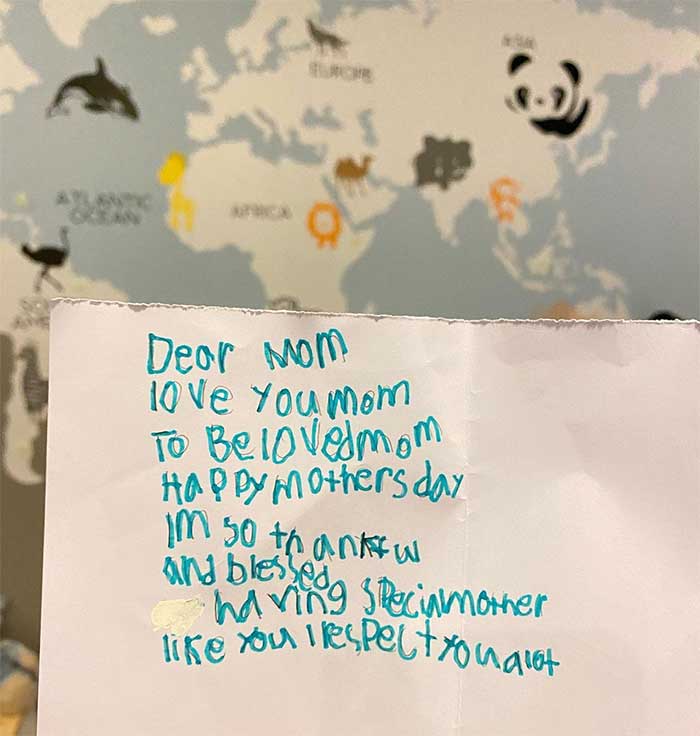 EUROPE
ASIA
ATLANTIC
OCEAN
AFRICA
Dear Mom
love You mom
To Beloved mom
Happy mothers day
Im so thankful
and blessed
having special mother
like you I respect you alot